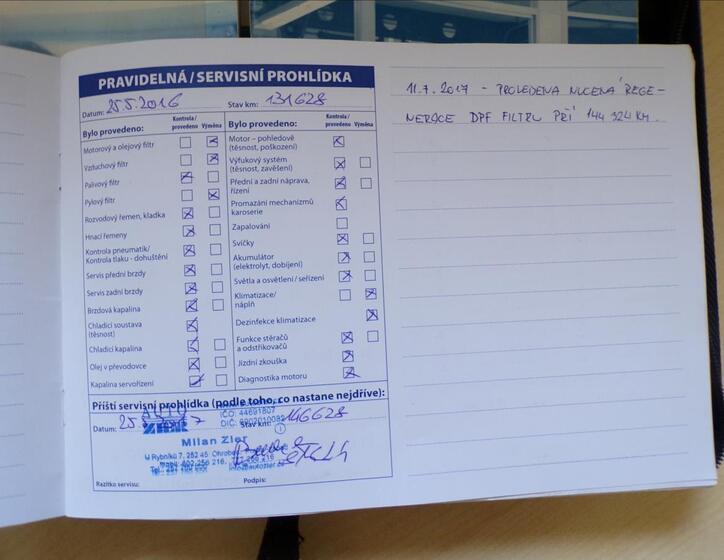 PRAVIDELNÁ / SERVISNÍ PROHLÍDKA
Datum: 25.5.2016 Stav km: 131628
Bylo provedeno: Kontrola/provedeno Výměna
Motorový a olejový filtr
Vzduchový filtr
Palivový filtr
Pylový filtr
Rozvodový řemen, kladka
Hnací řemeny
Kontrola pneumatik/
Kontrola tlaku - dohuštění
Servis přední brzdy
Servis zadní brzdy
Brzdová kapalina
Chladící soustava
(těsnost)
Chladící kapalina
Olej v převodovce
Kapalina servořízení
Bylo provedeno: Kontrola/provedeno Výměna
Motor – pohledově
(těsnost, poškození)
Výfukový systém
(těsnost, zavěšení)
Přední a zadní náprava,
řízení
Promazání mechanizmů
karoserie
Zapalování
Svíčky
Akumulátor
(elektrolyt, dobíjení)
Světla a osvětlení / seřízení
Klimatizace/
náplň
Dezinfekce klimatizace
Funkce stěračů
a odstřikovačů
Jízdní zkouška
Diagnostika motoru
Příští servisní prohlídka (podle toho, co nastane nejdříve):
Datum: 25. Stav km: 146628
AUTO
IČO: 44691807
DIČ:
Milan Zler
U Rybníků 7, 252 45
Razítko servisu: Podpis:
11.7.2017 - PROVEDENA NUCENÁ REGE-
NERACE DPF FILTRU PŘI 144 924 KM.